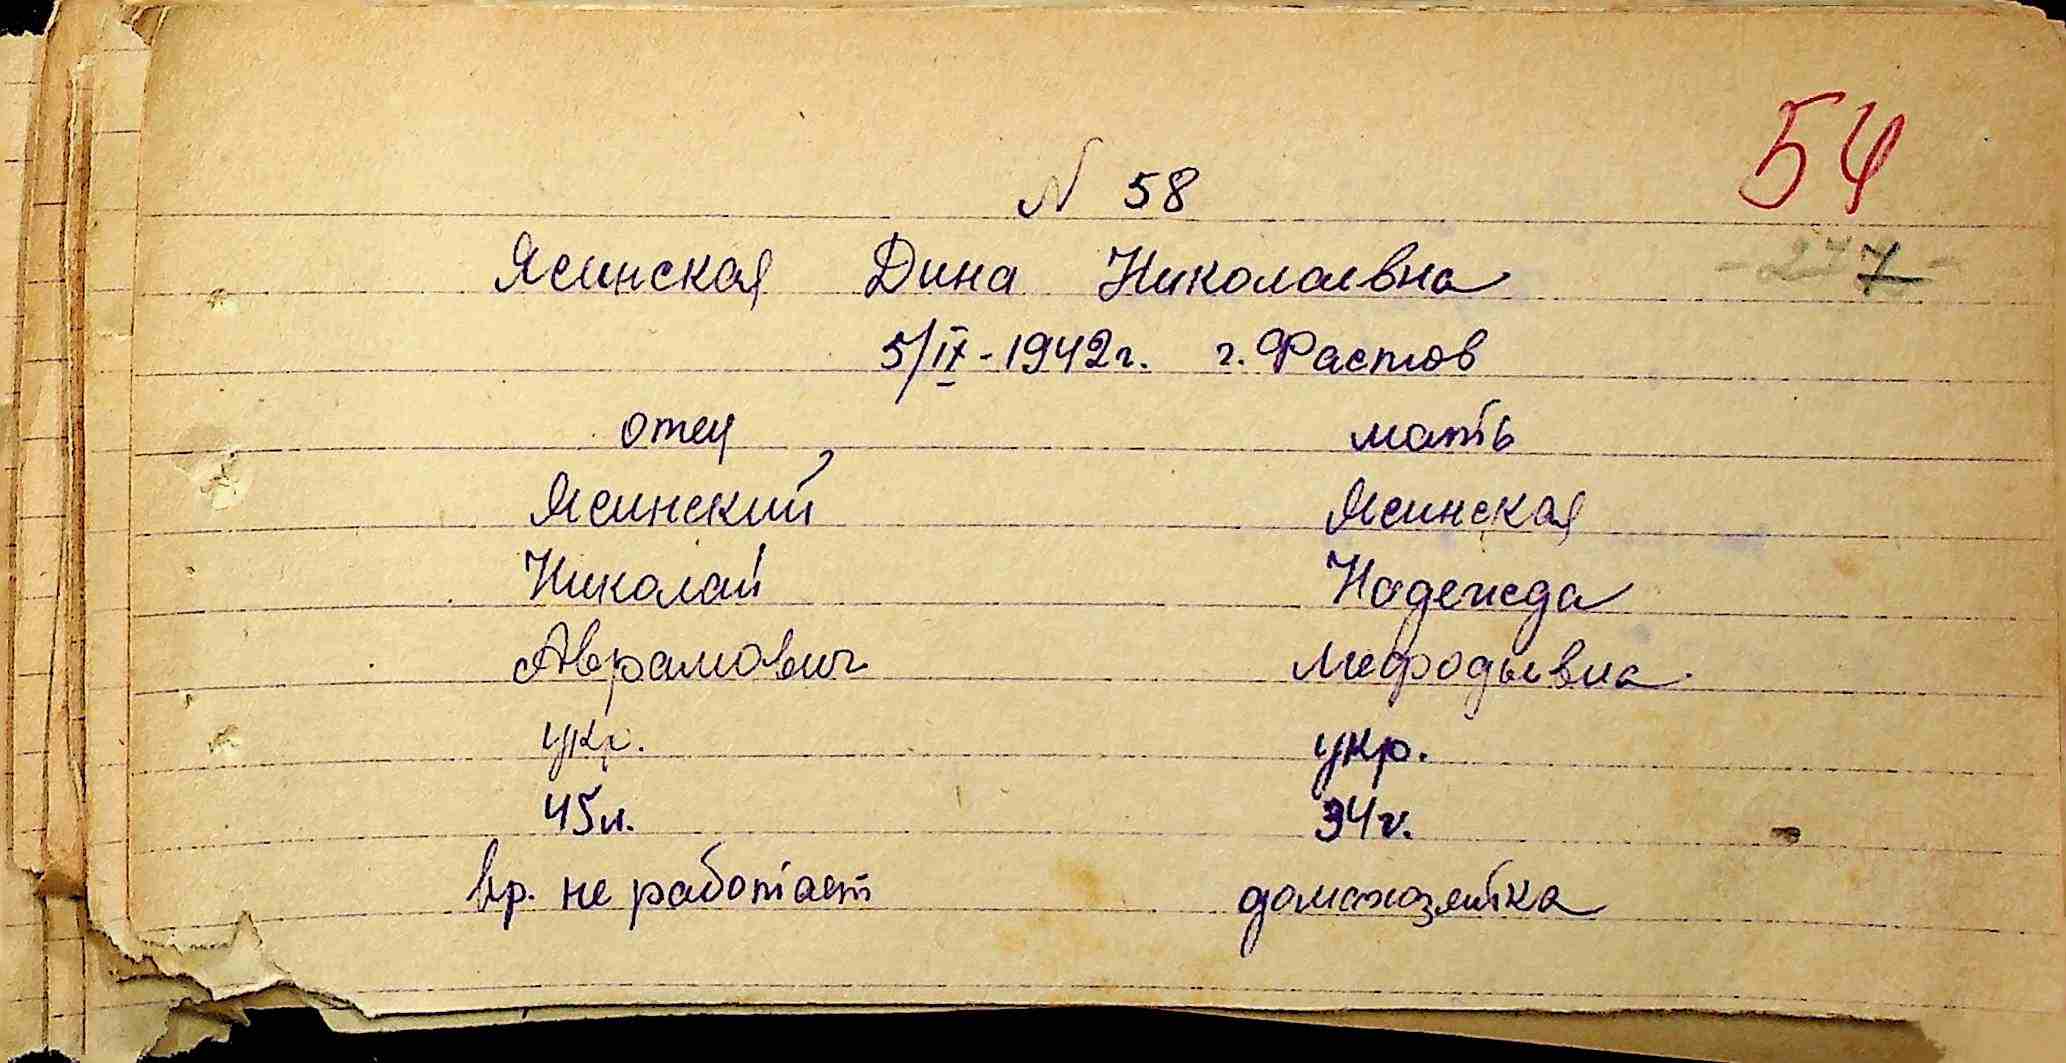 54
N 58
Ясинская Дина Николаевна
- 277 -
5/IX - 1942г. г. Фастов
отец мать
Ясинский Ясинская
Николай Надежда
Аврамович Мефодьевна.
укр. укр.
45л. 34г.
вр. не работает домохозяйка